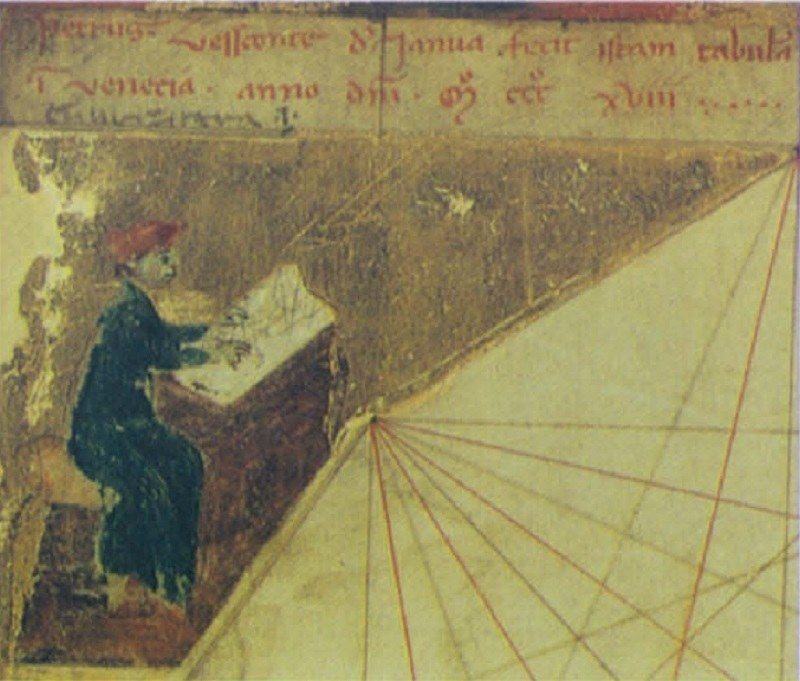 Petrus vessconte d' Janua fecit istam tabulã
ĩ venecia. anno dñi. mº cccº xviii .....